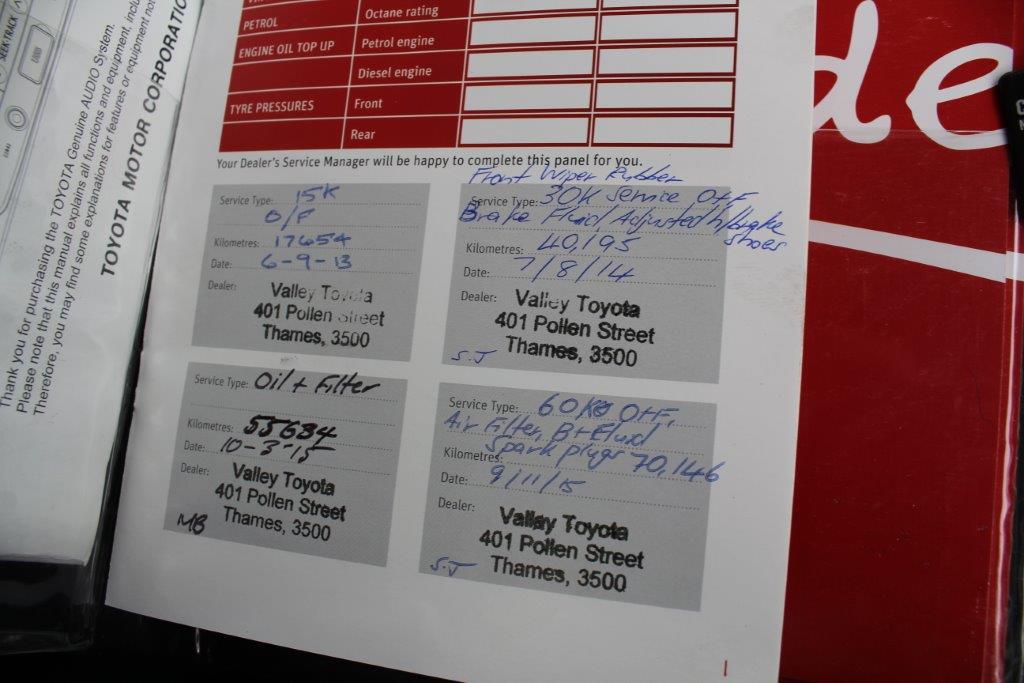 SEEK·TRACK
LOUD
Thank you for purchasing the TOYOTA Genuine AUDIO System.
Please note that this manual explains all functions and equipment, inclu
Therefore, you may find some explanations for features or equipment no
TOYOTA MOTOR CORPORATIO
PETROL Octane rating
ENGINE OIL TOP UP Petrol engine
Diesel engine
TYRE PRESSURES Front
Rear
Your Dealer's Service Manager will be happy to complete this panel for you.
Service Type: 15K
O/F
Kilometres: 17654
Date: 6-9-13
Dealer: Valley Toyota
401 Pollen Street
Thames, 3500
Front Wiper Rubber
Service Type: 30K Service O+F
Brake Fluid/Adjusted h/brake
shoes
Kilometres: 40,195
Date: 7/8/14
Dealer: Valley Toyota
401 Pollen Street
Thames, 3500
S.J
Service Type: Oil + Filter
Kilometres: 55634
Date: 10-3-15
Dealer: Valley Toyota
401 Pollen Street
Thames, 3500
MB
Service Type: 60K O+F,
Air Filter, B+Fluid
Spark plugs 70,146
Kilometres:
Date: 9/11/15
Dealer: Valley Toyota
401 Pollen Street
Thames, 3500
S.J
de